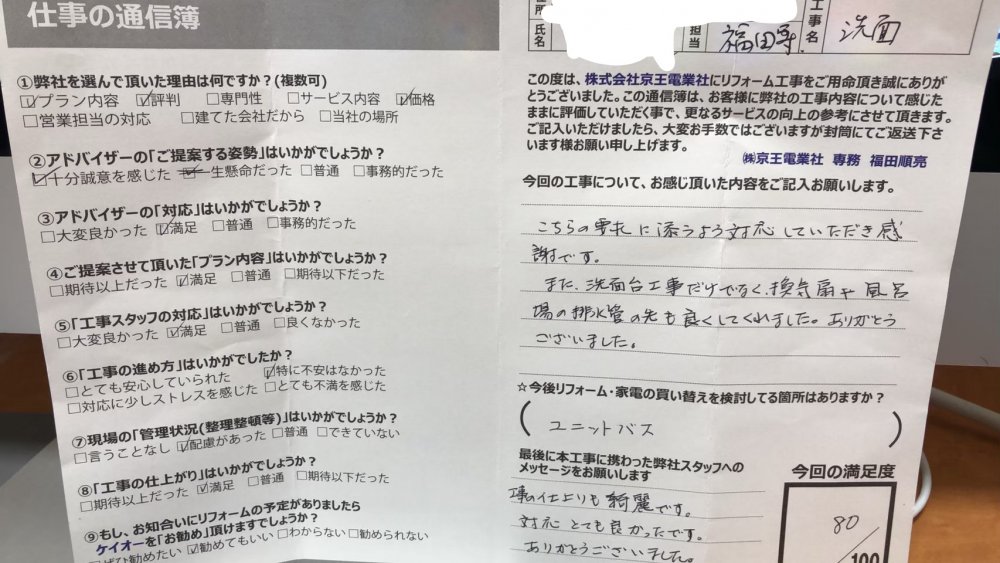 仕事の通信簿
①弊社を選んで頂いた理由は何ですか？(複数可)
☑プラン内容 ☑評判 □専門性 □サービス内容 ☑価格
□営業担当の対応 □建てた会社だから □当社の場所
②アドバイザーの「ご提案する姿勢」はいかがでしょうか？
☑十分誠意を感じた ☑一生懸命だった □普通 □事務的だった
③アドバイザーの「対応」はいかがでしょうか？
□大変良かった ☑満足 □普通 □事務的だった
④ご提案させて頂いた「プラン内容」はいかがでしょうか？
□期待以上だった ☑満足 □普通 □期待以下だった
⑤「工事スタッフの対応」はいかがでしょうか？
□大変良かった ☑満足 □普通 □良くなかった
⑥「工事の進め方」はいかがでしたか？
□とても安心していられた ☑特に不安はなかった
□対応に少しストレスを感じた □とても不満を感じた
⑦現場の「管理状況(整理整頓等)」はいかがでしょうか？
□言うことなし ☑配慮があった □普通 □できていない
⑧「工事の仕上がり」はいかがでしょうか？
□期待以上だった ☑満足 □普通 □期待以下だった
⑨もし、お知合いにリフォームの予定がありましたら
ケイオーを「お勧め」頂けますでしょうか？
□ぜひ勧めたい ☑勧めてもいい □わからない □勧められない
氏名
担当 福田
工事名 洗面
この度は、株式会社京王電業社にリフォーム工事をご用命頂き誠にありが
とうございました。この通信簿は、お客様に弊社の工事内容について感じた
ままに評価していただく事で、更なるサービスの向上の参考にさせて頂きます。
ご記入いただけましたら、大変お手数ではございますが封筒にてご返送下さ
います様お願い申し上げます。
㈱京王電業社 専務 福田順亮
今回の工事について、お感じ頂いた内容をご記入お願いします。
こちらの要望に添うよう対応していただき感
謝です。
また、洗面台工事だけでなく、換気扇や風呂
場の排水管の先も良くしてくれました。ありがとう
ございました。
☆今後リフォーム・家電の買い替えを検討してる箇所はありますか？
(ユニットバス)
最後に本工事に携わった弊社スタッフへの
メッセージをお願いします
工事の仕上りも綺麗です。
対応とても良かったです。
ありがとうございました。
今回の満足度
80
/100